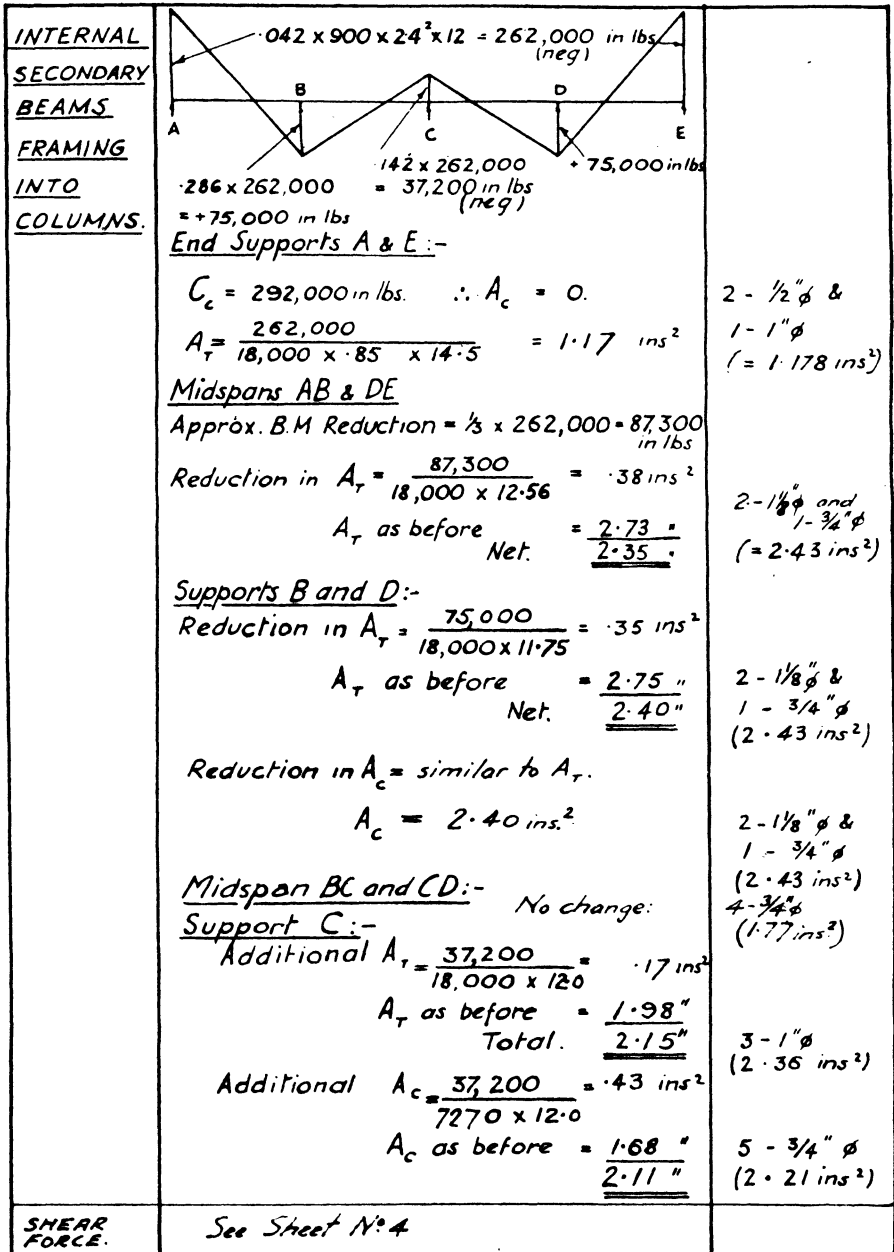 INTERNAL
SECONDARY
BEAMS
FRAMING
INTO
COLUMNS.
·042 x 900 x 24² x 12 = 262,000 in lbs
(neg)
A
B
C
D
E
·286 x 262,000
= +75,000 in lbs
·142 x 262,000
= 37,200 in lbs
(neg)
+ 75,000 in lbs
End Supports A & E :-
C_c = 292,000 in lbs. ∴ A_c = 0.
2 - ½"φ &
A_T = 262,000 / 18,000 x ·85 x 14·5 = 1·17 ins²
1 - 1"φ
(= 1·178 ins²)
Midspans AB & DE
Approx. B.M Reduction = ⅓ x 262,000 = 87,300
in lbs
Reduction in A_T = 87,300 / 18,000 x 12·56 = ·38 ins²
2 - 1⅛"φ and
1 - ¾"φ
A_T as before = 2·73 "
Net. 2·35 "
(= 2·43 ins²)
Supports B and D:-
Reduction in A_T = 75,000 / 18,000 x 11·75 = ·35 ins²
A_T as before = 2·75 "
2 - 1⅛"φ &
Net. 2·40 "
1 - 3/4"φ
(2·43 ins²)
Reduction in A_c = similar to A_T.
A_c = 2·40 ins.²
2 - 1⅛"φ &
1 - 3/4"φ
(2·43 ins²)
Midspan BC and CD:-
No change:
4 - ¾"φ
(1·77 ins²)
Support C:-
Additional A_T = 37,200 / 18,000 x 12·0 = ·17 ins²
A_T as before = 1·98"
Total. 2·15"
3 - 1"φ
(2·36 ins²)
Additional A_c = 37,200 / 7270 x 12·0 = ·43 ins²
A_c as before = 1·68 "
5 - 3/4"φ
2·11 "
(2·21 ins²)
SHEAR
FORCE.
See Sheet Nº 4